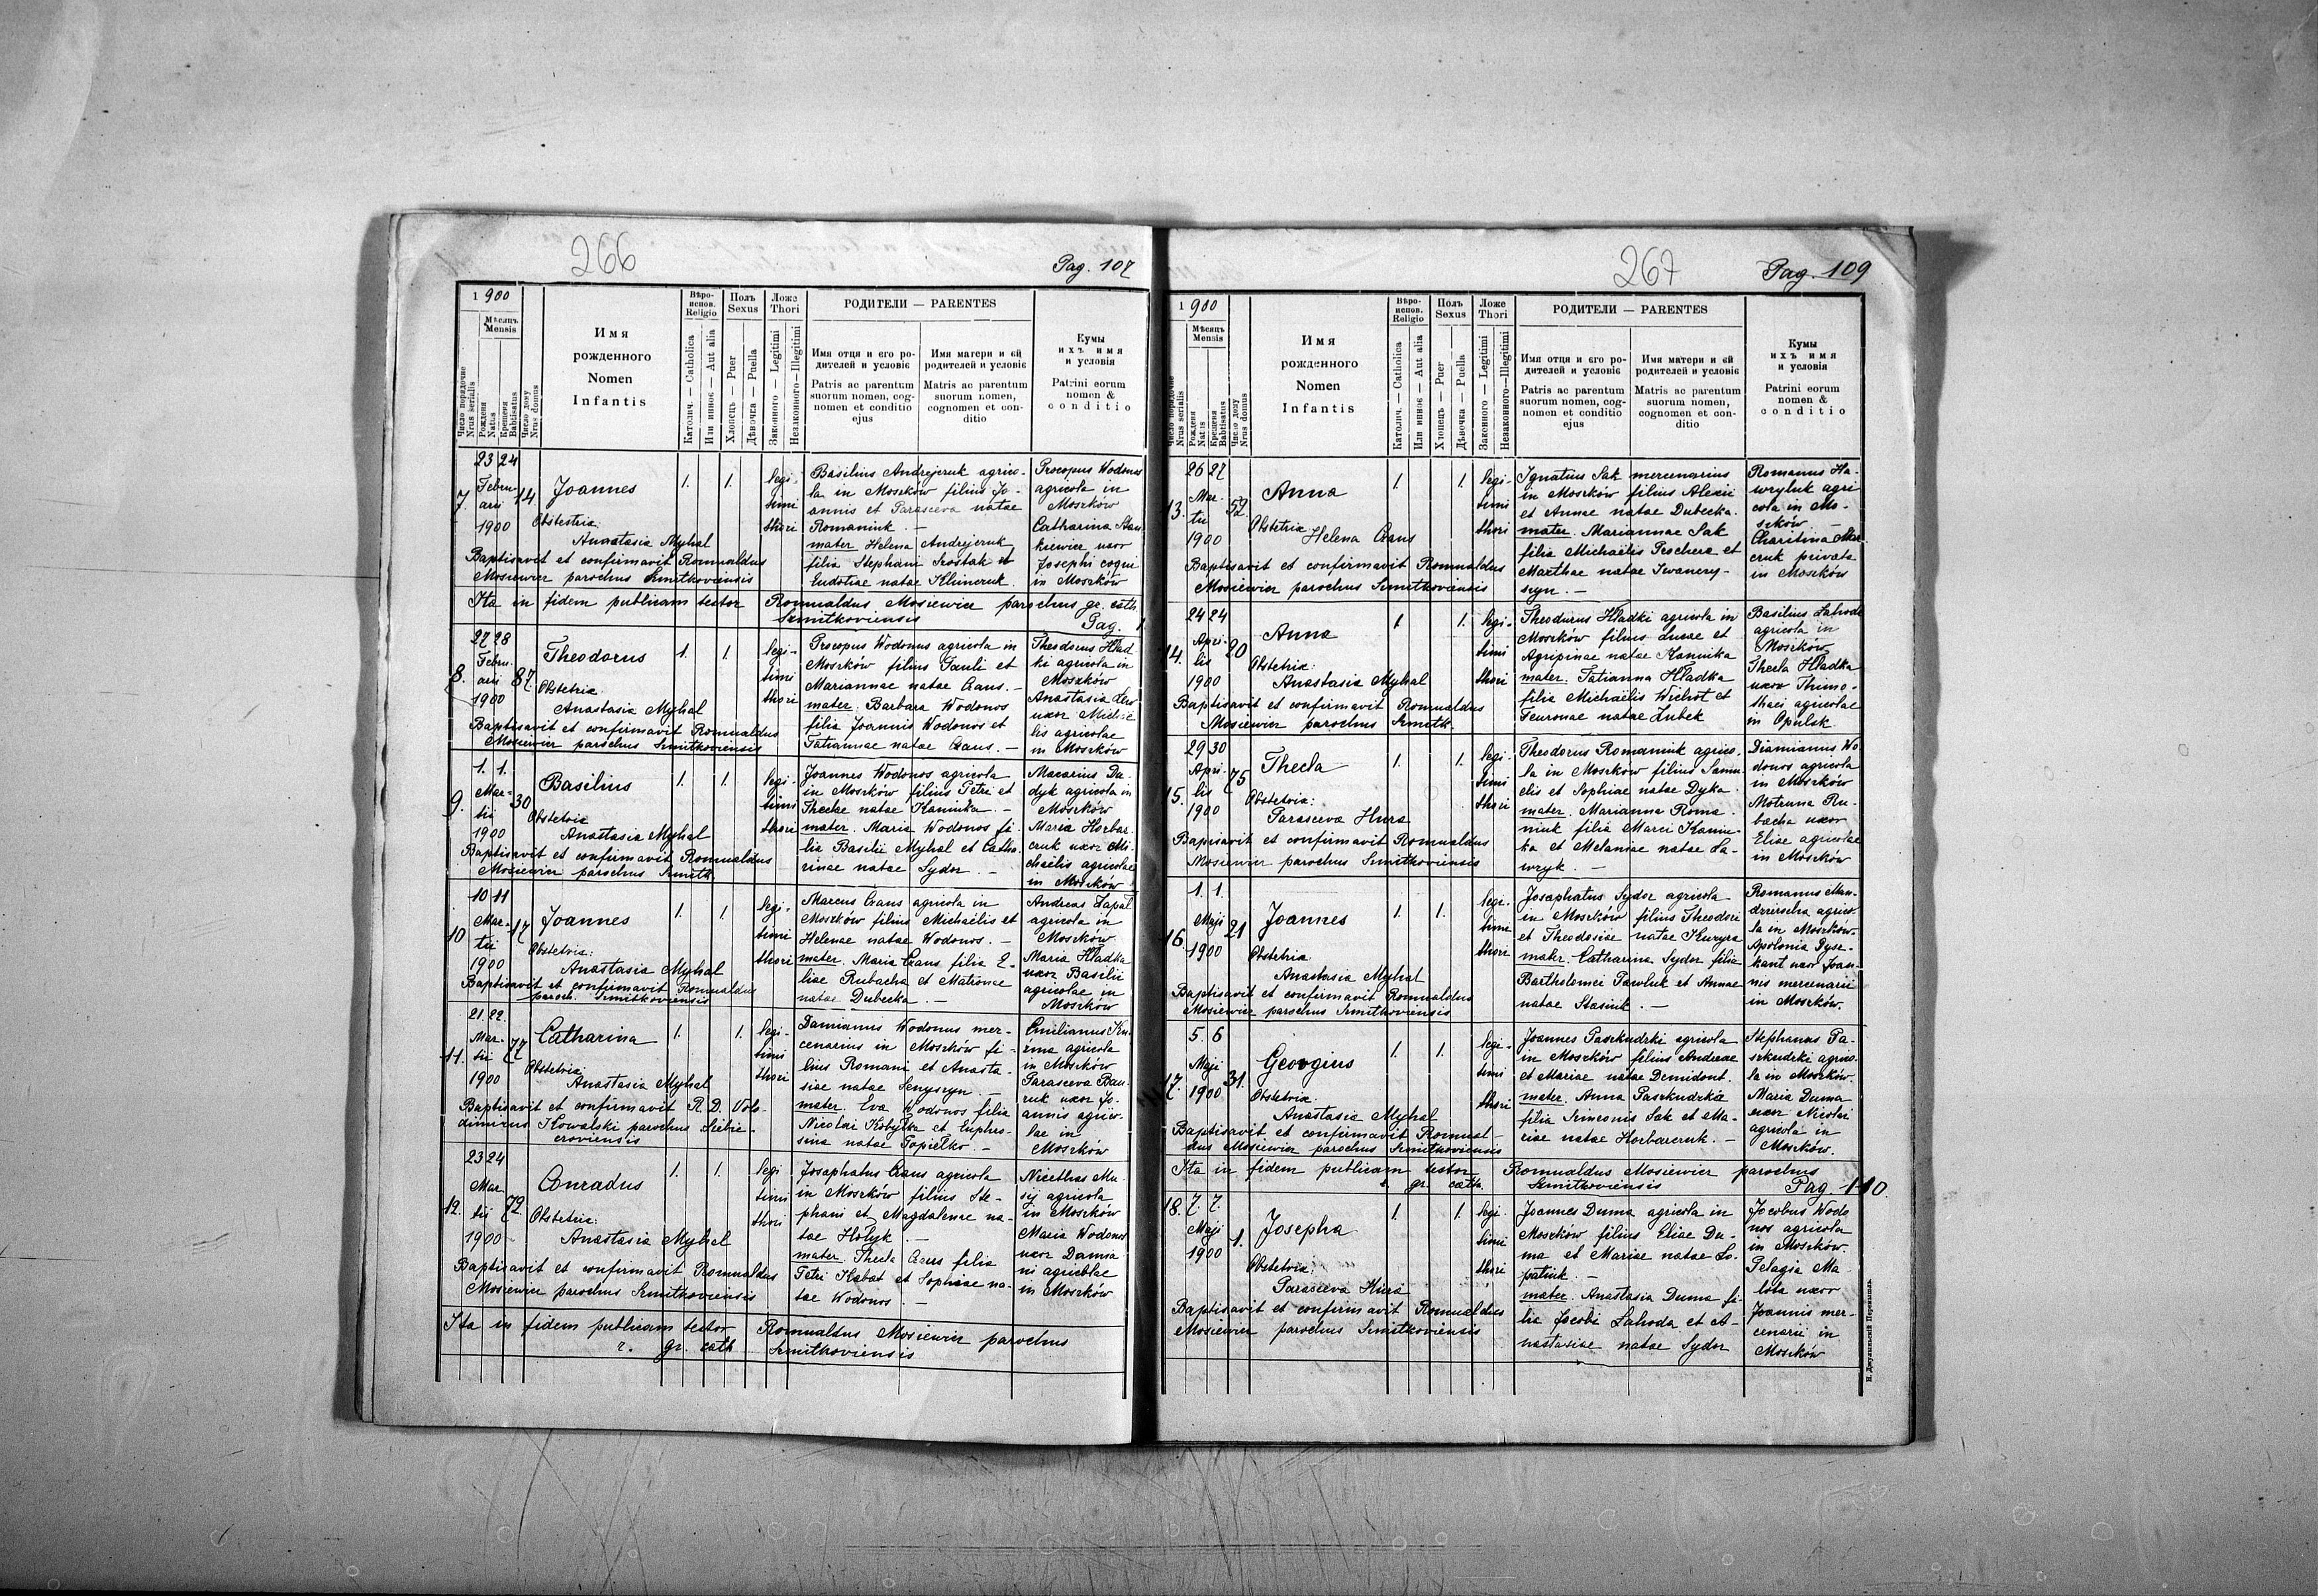 266
Pag. 107
1 900
Мѣсяць
Mensis
Число порядочне
Nrus serialis
Рождення
Natus
Крещення
Babtisatus
Число дому
Nrus domus
Имя
рожденного
Nomen
Infantis
Вѣро-
испов.
Religio
Католич. — Catholica
Или инноє — Aut alia
Полъ
Sexus
Хлопець — Puer
Дѣвочка — Puella
Ложе
Thori
Законного — Legitimi
Незаконного — Illegitimi
РОДИТЕЛИ — PARENTES
Имя отця и єго ро-
дителей и условіє
Patris ac parentum
suorum nomen, cog-
nomen et conditio
ejus
Имя матери и єй
родителей и условіє
Matris ac parentum
suorum nomen,
cognomen et con-
ditio
Кумы
ихъ имя
и условія
Patrini eorum
nomen &
conditio
7.
23 24
Febru-
arii
1900
14
Joannes
Obstetrix:
Anastasia Myhal
Baptisavit et confirmavit Romualdus
Mosiewicz parochus Szmitkoviensis
1. 1.
legi-
timi
thori
Basilius Andrejczuk agrico-
la in Moszków filius Jo-
annis et Parasceva natae
Romaniuk. —
mater Helena Andrejczuk
filia Stephani Szostak et
Eudotiae natae Klimczuk.
Procopus Wodonos
agricola in
Moszków
Catharina Stan
kiewicz uxor
Josephi coqui
in Moszków
Ita in fidem publicam testor Romualdus Mosiewicz parochus gr. cath.
Szmitkoviensis
Pag. 1
8.
27 28
Febru-
arii
1900
87
Theodorus
Obstetrix:
Anastasia Myhal
Baptisavit et confirmavit Romualdus
Mosiewicz parochus Szmitkoviensis
1. 1.
legi-
timi
thori
Procopus Wodonus agricola in
Moszków filius Pauli et
Mariannae natae Czaus. —
mater. Barbara Wodonos
filia Joannis Wodonos et
Tatiannae natae Czaus. —
Theodorus Hlad-
ki agricola in
Moszków
Anastasia
uxor Michaë
lis agricolae
in Moszków
9.
1. 1.
Mar-
tii
1900
30
Basilius
Obstetrix
Anastasia Myhal
Baptisavit et confirmavit Romualdus
Mosiewicz parochus Szmitk.
1. 1.
legi-
timi
thori
Joannes Wodonos agricola
in Moszków filius Petri et
Theclae natae Kaminka. —
mater. Maria Wodonos fi-
lia Basilii Myhal et Catha-
rinae natae Sydor. —
Macarius Da-
dyk agricola in
Moszków
Maria Horbar-
czuk uxor Mi-
chaëlis agricolae
in Moszków
10
10 11
Mar-
tii
1900
17
Joannes
Obstetrix:
Anastasia Myhal
Baptisavit et confirmavit Romualdus
paroch. Szmitkoviensis
1. 1.
legi-
timi
thori
Marcus Czaus agricola in
Moszków filius Michaëlis et
Helenae natae Wodonos. —
mater. Maria Czaus filia E-
liae Rubacha et Matronae
natae Dubecka. —
Andreas Lapal
agricola in
Moszków
Maria Hladka
uxor Basilii
agricolae in
Moszków
11.
21. 22.
Mar-
tii
1900
77
Catharina
Obstetrix:
Anastasia Myhal
Baptisavit et confirmavit R. D. Volo-
dimirus Kowalski parochus
croviensis
1. 1.
legi-
timi
thori
Damianus Wodonus mer-
cenarius in Moszków fi-
lius Romani et Anasta-
siae natae Senyszyn. —
mater. Eva Wodonos filia
Nicolai Kobyłka et Euphro-
sina natae Popielko. —
Emilianus Ku-
źma agricola
in Moszków
Parasceva Bau-
ruk uxor Jo-
annis agrico-
lae in
Moszków
12.
23 24
Mar
tii
1900
72.
Conradus
Obstetrix:
Anastasia Myhal
Baptisavit et confirmavit Romualdus
Mosiewicz parochus Szmitkoviensis
1. 1.
legi
timi
thori
Josaphatus Czaus agricola
in Moszków filius Ste-
phani et Magdalenae na-
tae Holyk. —
mater Thecla Czaus filia
Petri Kabat et Sophiae na-
tae Wodonos. —
Nicethas Mu-
sij agricola
in Moszków
Maria Wodonos
uxor Damia
ni agricolae
in Moszków
Ita in fidem publicam testor Romualdus Mosiewicz parochus
r. gr. cath Szmitkoviensis
267
Pag. 109
1 900
Мѣсяць
Mensis
Число порядочне
Nrus serialis
Рождення
Natus
Крещення
Babtisatus
Число дому
Nrus domus
Имя
рожденного
Nomen
Infantis
Вѣро-
испов.
Religio
Католич. — Catholica
Или инноє — Aut alia
Полъ
Sexus
Хлопець — Puer
Дѣвочка — Puella
Ложе
Thori
Законного — Legitimi
Незаконного — Illegitimi
РОДИТЕЛИ — PARENTES
Имя отця и єго ро-
дителей и условіє
Patris ac parentum
suorum nomen, cog-
nomen et conditio
ejus
Имя матери и єй
родителей и условіє
Matris ac parentum
suorum nomen,
cognomen et con-
ditio
Кумы
ихъ имя
и условія
Patrini eorum
nomen &
conditio
13.
26 27
Mar-
tii
1900
52.
Anna
Obstetrix
Helena Czaus
Baptisavit et confirmavit Romualdus
Mosiewicz parochus Szmitkoviensis
1. 1.
legi-
timi
thori
Ignatius Sak mercenarius
in Moszków filius Alexii
et Annae natae Dubecka.
mater. Mariannae Sak
filia Michaëlis Pechera et
Marthae natae Iwanczy-
szyn. —
Romanus Ha-
wryluk agri
cola in Mo-
szków —
Charitina Mar
czuk privata
in Moszków
14.
24 24
Apri-
lis
1900
20
Anna
Obstetrix:
Anastasia Myhal
Baptisavit et confirmavit Romualdus
Mosiewicz parochus Szmitk.
1 1.
legi-
timi
thori
Theodorus Hladki agricola in
Moszków filius Lucae et
Agripinae natae Kaminka
mater. Tatianna Hladka
filia Michaëlis Wichot et
Feuronae natae Zubek
Basilius Lahoda
agricola in
Moszków
Thecla Hladka
uxor Thimo-
thaei agricolae
in Opulsk
15.
29 30
Apri-
lis
1900
75
Thecla
Obstetrix:
Parasceva Hura
Baptisavit et confirmavit Romualdus
Mosiewicz parochus Szmitkoviensis
1. 1.
legi-
timi
thori
Theodorus Romaniuk agrico-
la in Moszków filius Samu-
elis et Sophiae natae Dyka.
mater. Marianna Roma-
niuk filia Marci Kamin-
ka et Melaniae natae Ła-
wryk. —
Diamianus Wo
donos agricola
in Moszków
Motruna Ru-
bacha uxor
Eliae agricolae
in Moszków
16.
1. 1.
Maji
1900
21
Joannes
Obstetrix
Anastasia Myhal
Baptisavit et confirmavit Romualdus
Mosiewicz parochus Szmitkoviensis
1. 1.
legi-
timi
thori
Josaphatus Sydor agricola
in Moszków filius Theodori
et Theodosiae natae Kuzyra
mater. Catharina Sydor filia
Bartholomei Pawluk et Annae
natae Stasiuk. —
Romanus Man-
dziercha agrico-
la in Moszków.
Apolonia Pysz-
kant uxor Joan-
nis mercenarii
in Moszków.
17.
5. 6
Maji
1900
31.
Georgius
Obstetrix.
Anastasia Myhal
Baptisavit et confirmavit Romual-
dus Mosiewicz parochus Szmitkoviensis
1. 1.
legi-
timi
thori
Joannes Paszkudzki agricola
in Moszków filius Andreae
et Mariae natae Demidont.
mater. Anna Paszkudzka
filia Simeonis Sak et Ma-
riae natae Horbarczuk. —
Stephanus Pa-
szkudzki agrico-
la in Moszków.
Maria Duma
uxor Nicolai
agricola in
Moszków.
Ita in fidem publicam testor Romualdus Mosiewicz parochus
r. gr. cath. Szmitkoviensis
Pag. 110.
18.
7. 7.
Maji
1900
1.
Josepha
Obstetrix:
Parasceva Hura
Baptisavit et confirmavit Romualdus
Mosiewicz parochus Szmitkoviensis
1. 1.
legi
timi
thori
Joannes Duma agricola in
Moszków filius Eliae Du-
ma et Mariae natae Lo-
patiuk. —
mater. Anastasia Duma fi-
lia Jacobi Lahoda et A-
nastasiae natae Sydor
Jacobus Wodo
nos agricola
in Moszków.
Pelagia Ma
lota uxor
Joannis mer-
cenarii in
Moszków
Н. Джулыньскій Перемышль.